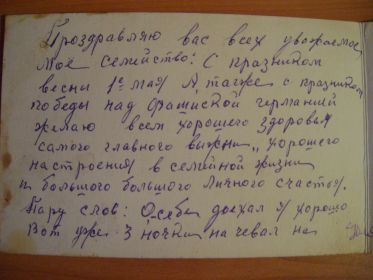 Проздравляю вас всех уважаемое
Моё семейство: С празником
весны 1е мая А, также с празником
победы над фашиской германией
желаю всем хорошего здоровья
самого главного в жизни,, хорошего
настроения в семейной жизни
и большого большого личного счастья.
Пару слов: О себе доехал я хорошо
Вот уже 3 ночки на чевал на